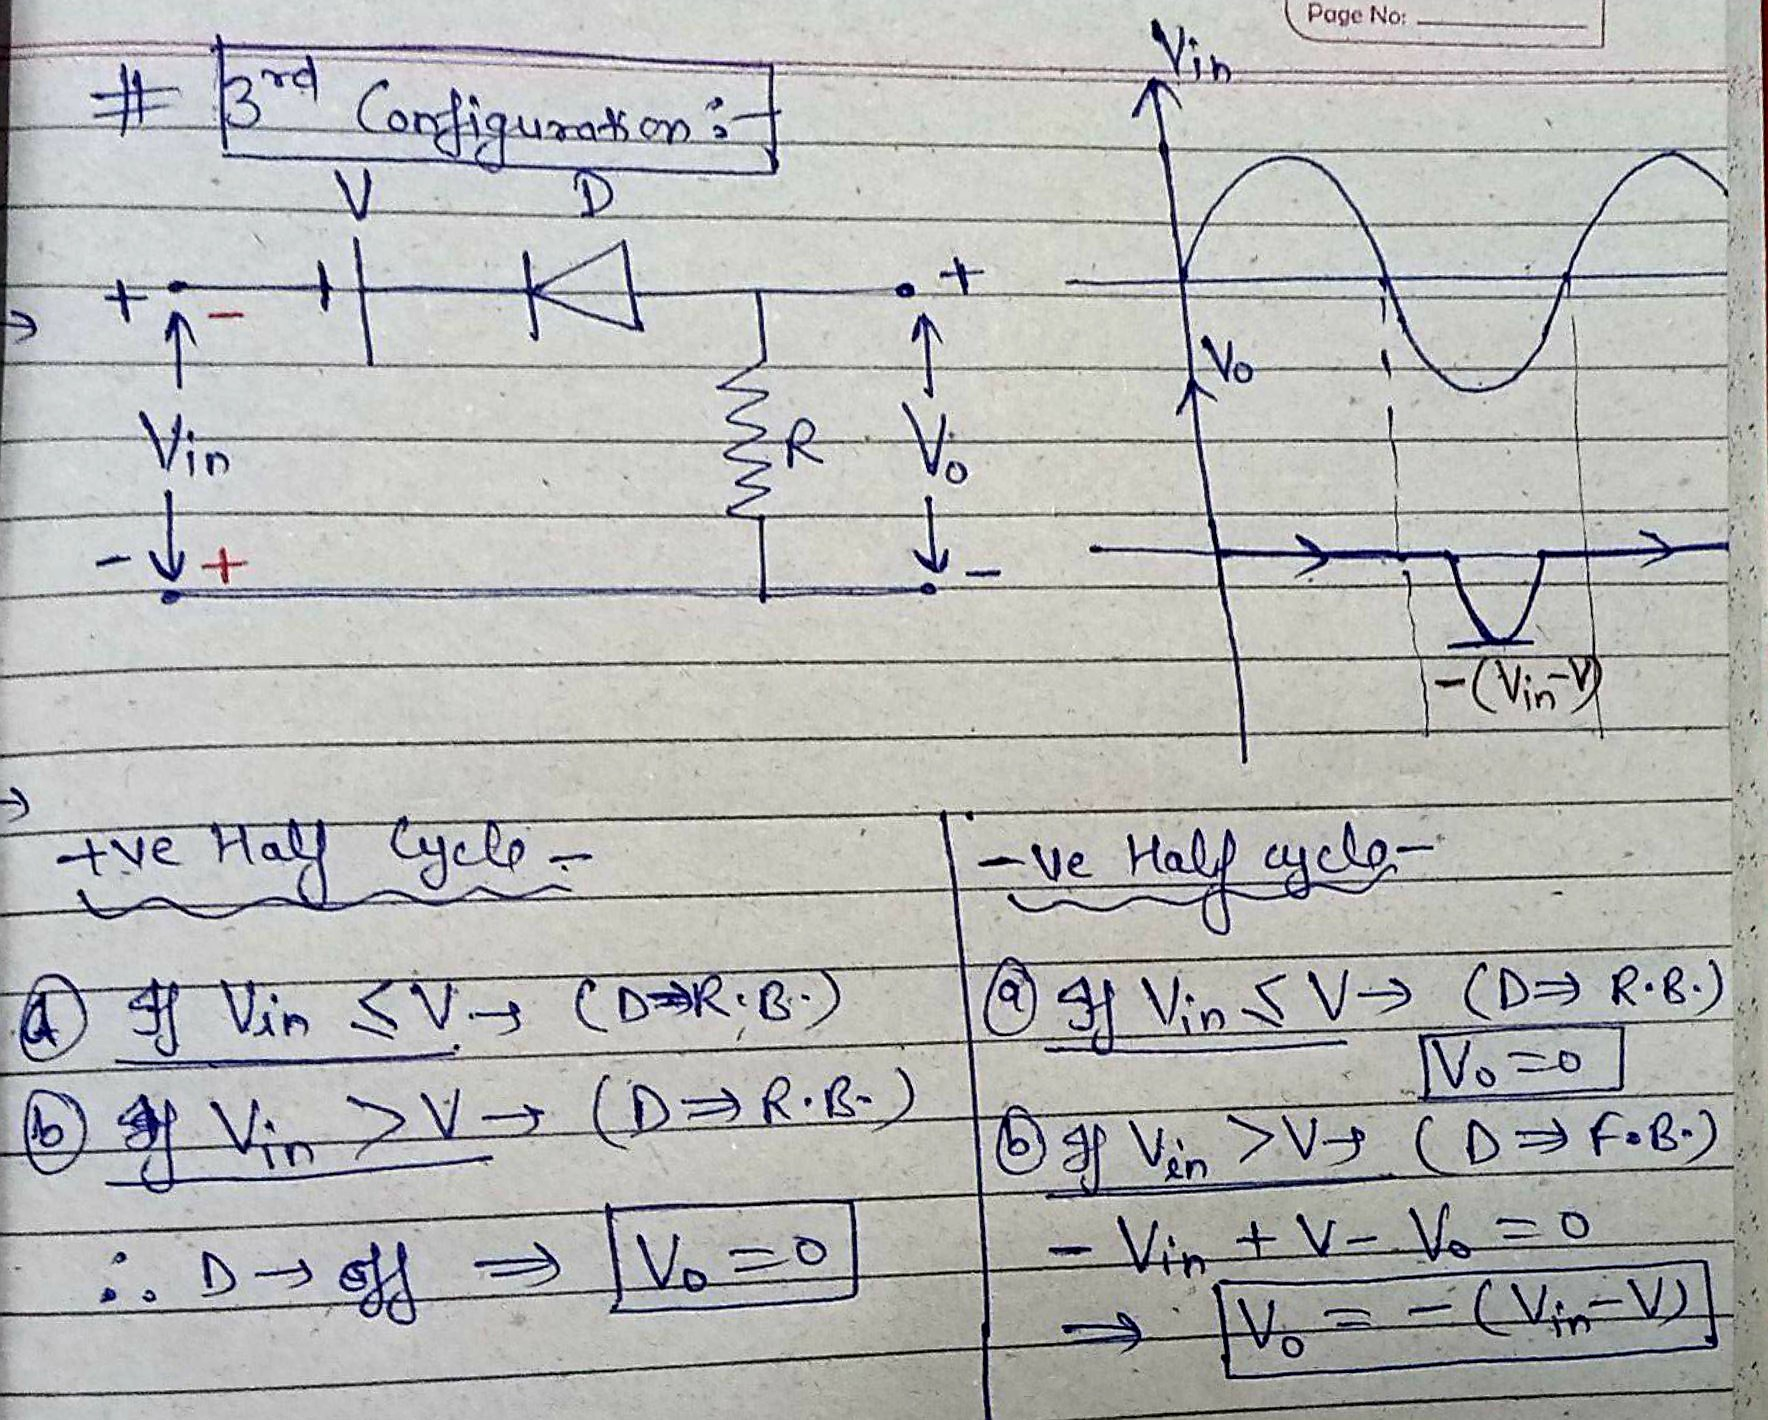 Page No:
# 3rd Configuration :-
V D
+ - +
Vin R Vo
- + -
Vin
Vo
-(Vin-V)
+ve Half Cycle -
(a) If Vin ≤ V → (D ⇒ R.B.)
(b) If Vin > V → (D ⇒ R.B.)
∴ D → off ⇒ Vo = 0
-ve Half cycle -
(a) If Vin ≤ V → (D ⇒ R.B.)
Vo = 0
(b) If Vin > V → (D ⇒ F.B.)
- Vin + V - Vo = 0
⇒ Vo = - (Vin - V)